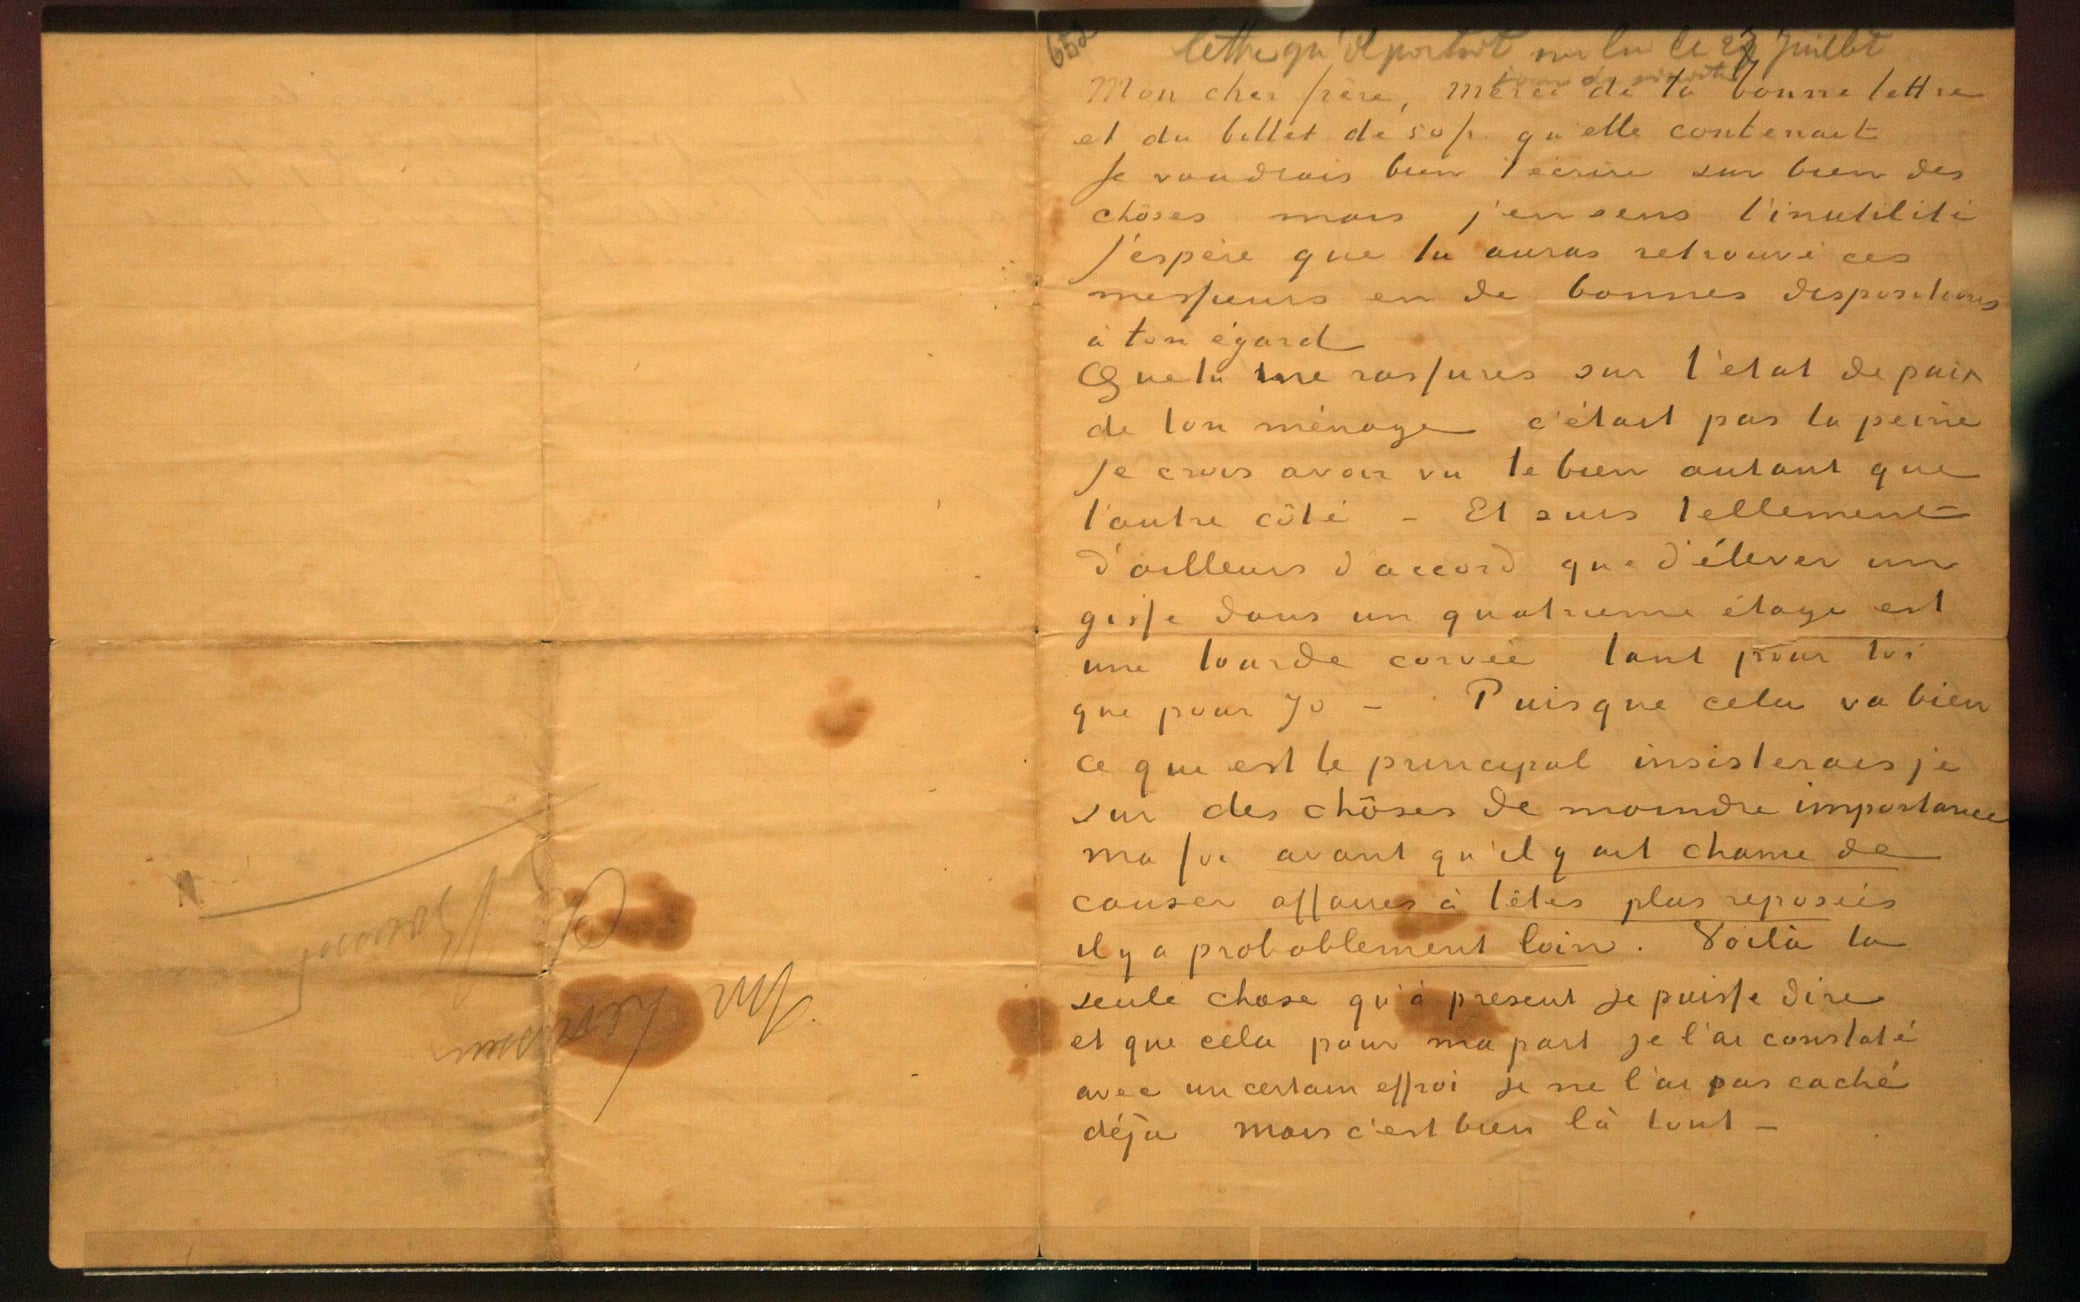 652
lettre qu'il portait sur lui le 27 Juillet
Mon cher frère, Merci de ta bonne lettre
et du billet de 50 fr. qu'elle contenait
Je voudrais bien t'écrire sur bien des
chôses mais j'en sens l'inutilité
J'espère que tu auras retrouvé ces
messieurs en de bonnes dispositions
à ton égard
Que tu me rassures sur l'état de paix
de ton ménage c'était pas la peine
Je crois avoir vu le bien autant que
l'autre côté – Et suis tellement
d'ailleurs d'accord que d'élever un
gosse dans un quatrieme étage est
une lourde corvée tant pour toi
que pour Jo – Puisque cela va bien
ce que est le principal insisterais je
sur des chôses de moindre importance
ma foi avant qu'il y ait chance de
causer affaires à têtes plus reposées
il y a probablement loin. Voilà la
seule chose qu'à présent je puisse dire
et que cela pour ma part je l'ai constaté
avec un certain effroi je ne l'ai pas caché
déjà mais c'est bien là tout –